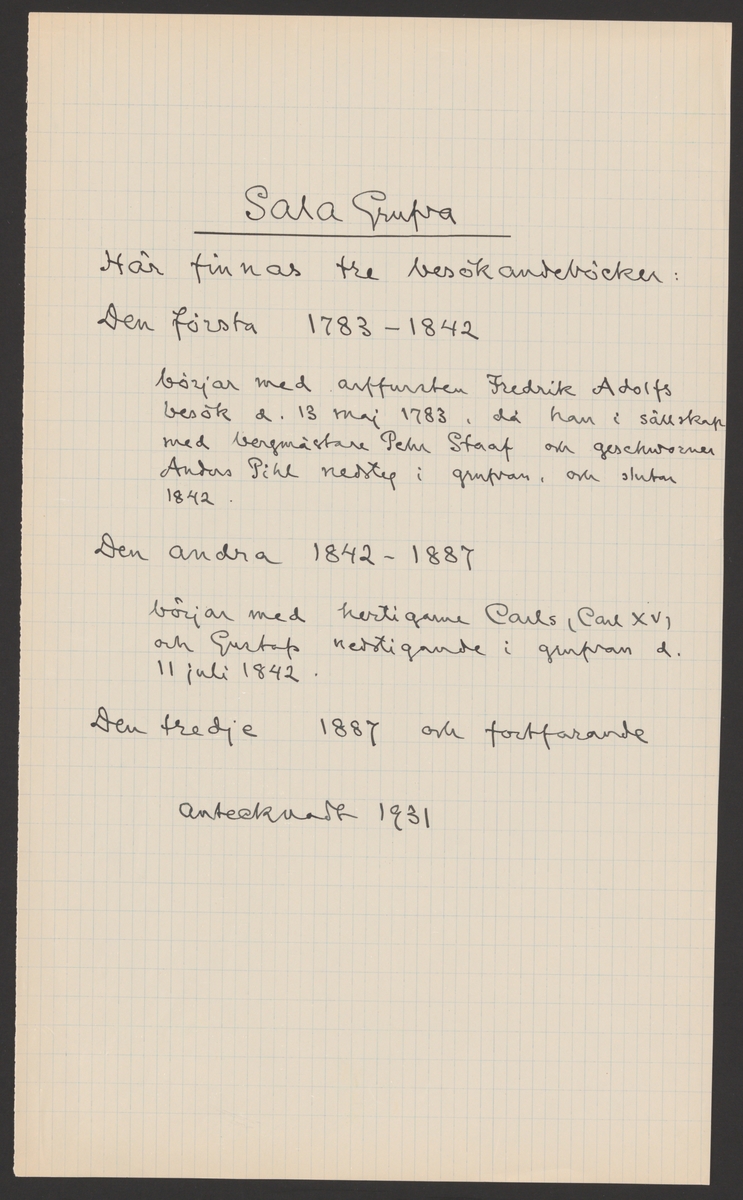 Sala Grufva
Här finnas tre besökandeböcker:
Den första 1783-1842
börjar med arffursten Fredrik Adolfs
besök d. 13 maj 1783, då han i sällskap
med bergmästare Pehr Staaf och geschworner
Anders Pihl nedsteg i grufvan, och slutar
1842.
Den andra 1842-1887
börjar med hertigarne Carls (Carl XV)
och Gustafs nedstigande i grufvan d.
11 juli 1842.
Den tredje 1887 och fortfarande
Antecknadt 1931